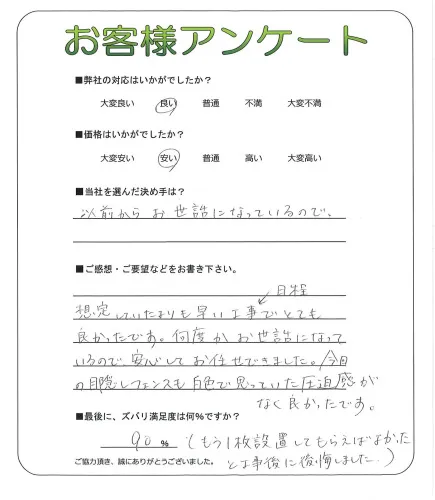 お客様アンケート
■弊社の対応はいかがでしたか？
大変良い 良い 普通 不満 大変不満
■価格はいかがでしたか？
大変安い 安い 普通 高い 大変高い
■当社を選んだ決め手は？
以前からお世話になっているので、
■ご感想・ご要望などをお書き下さい。
日程
想定していたよりも早い工事でとても
良かったです。何度かお世話になって
いるので安心してお任せできました。今回
の目隠しフェンスも白色で思っていた圧迫感が
なく良かったです。
■最後に、ズバリ満足度は何％ですか？
90 % (もう1枚設置してもらえばよかった
ご協力頂き、誠にありがとうございました。 と工事後に後悔しました。)